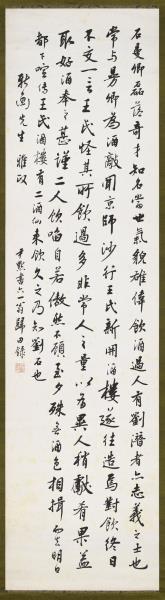 石曼卿磊落奇才知名當世氣貌雄偉飲酒過人有劉潛者亦志義之士也
常與曼卿為酒敵聞京師沙行王氏新開酒樓遂往造焉對飲終日
不交一言王氏怪其所飲過多非常人之量以為異人稍獻肴果益
取好酒奉之甚謹二人飲啗自若傲然不顧至夕殊無酒色相揖而去明日
都下喧傳王氏酒樓有二酒仙來飲久之乃知劉石也
尹默書六一翁歸田錄
先生雅政